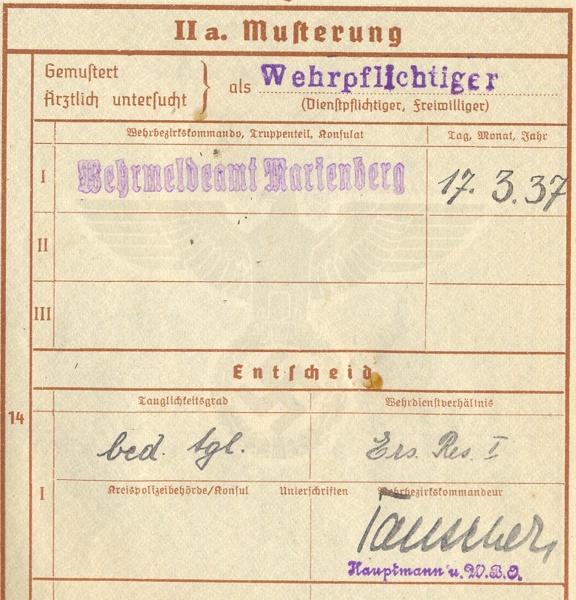 II a. Musterung
Gemustert
Ärztlich untersucht } als Wehrpflichtiger
(Dienstpflichtiger, Freiwilliger)
Wehrbezirkskommando, Truppenteil, Konsulat Tag, Monat, Jahr
I Wehrmeldeamt Marienberg 17. 3. 37
II
III
Entscheid
14
Tauglichkeitsgrad Wehrdienstverhältnis
bed. tgl. Ers. Res. I
I
Kreispolizeibehörde/Konsul Unterschriften Wehrbezirkskommandeur
Tauscher,
Hauptmann u. W.B.O.